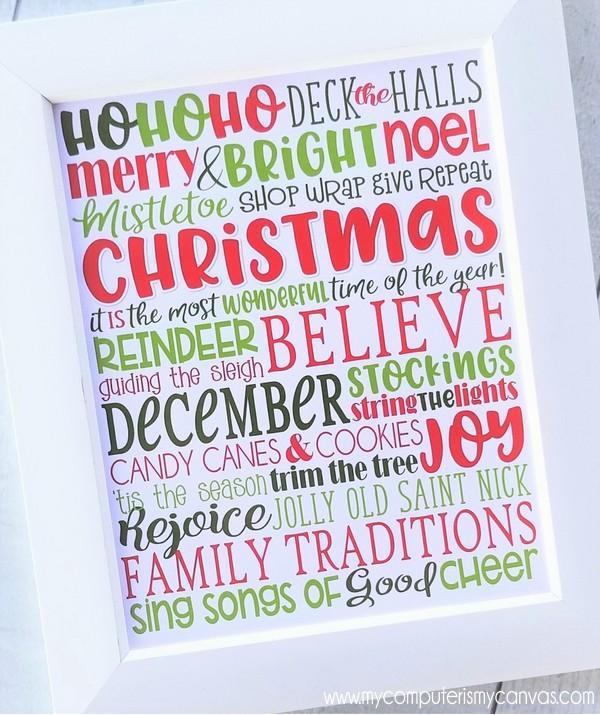 HO HO HO DECK the HALLS
merry & BRIGHT noel
Mistletoe SHOP WRAP GIVE REPEAT
CHRISTMAS
it IS the most WONDERFUL time of the year!
REINDEER BELIEVE
guiding the sleigh STOCKINGS
DECEMBER string THE lights
CANDY CANES & COOKIES JOY
'tis the season trim the tree
Rejoice JOLLY OLD SAINT NICK
FAMILY TRADITIONS
sing songs of Good CHEER
www.mycomputerismycanvas.com